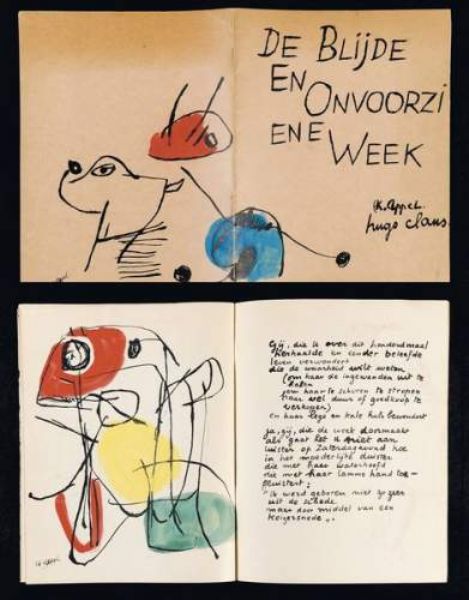 DE BLIJDE
EN
ONVOORZI
ENE WEEK
K. Appel.
hugo claus.
Gij, die u over dit honderdmaal
herhaalde en zonder beleefde
leven verwondert
die de waarheid wilt weten
(om haar de ingewanden uit te
halen
om haar te scheren te stropen
haar vel duur of goedkoop te
verkopen)
en haar lege en kale huls bewondert
ja, gij, die de week doormaakt
als gaat het u niet aan
luister op Zaterdagavond hoe
in het moederlijk duister
die met haar waterhoofd
die met haar lamme hand toe-
fluistert:
"Ik werd geboren niet zo zeer
uit de schede
maar door middel van een
keizersnede".